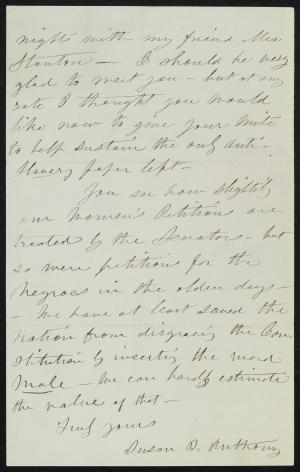 night with my friend Mrs.
Stanton — I should be very
glad to meet you — but at any
rate I thought you would
like now to give your mite
to help sustain the only anti-
Slavery paper left —
You see how slightily
our Women's Petitions are
treated by the Senators — but
so were petitions for the
Negroes in the olden days —
— We have at least saved the
nation from disgracing the Con
stitution by inserting the word
Male — We can hardly estimate
the value of that —
Truly yours
Susan B. Anthony